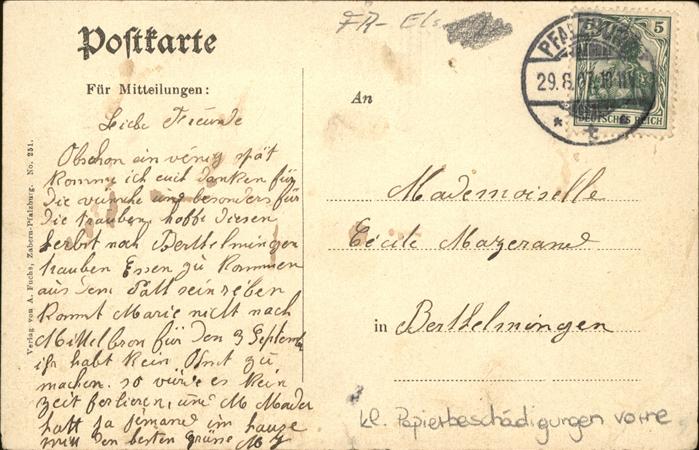 Postkarte
Für Mitteilungen:
FR-Els
PFALZBURG
29.8.07. 10-11V
5
DEUTSCHES REICH
An
Liebe Freunde
Obschon ein wenig spät
komme ich euch danken für
die wünche und besonders für
die trauben. hoffe diesen
herbst nach Berthelmingen
trauben Essen zu kommen
aus dem Patt sein reben
kommt Marie nicht nach
Mittelbron für den 3 Septemb
ihr habt kein Obst zu
machen. so würde es kein
zeit ferlieren, und M
hatt ja jemand im hause
den besten grüsse M
Mademoiselle
Cécile Mazerand
in Berthelmingen
kl. Papierbeschädigungen vorne
Verlag von A. Fuchs, Zabern-Pfalzburg. No. 251.